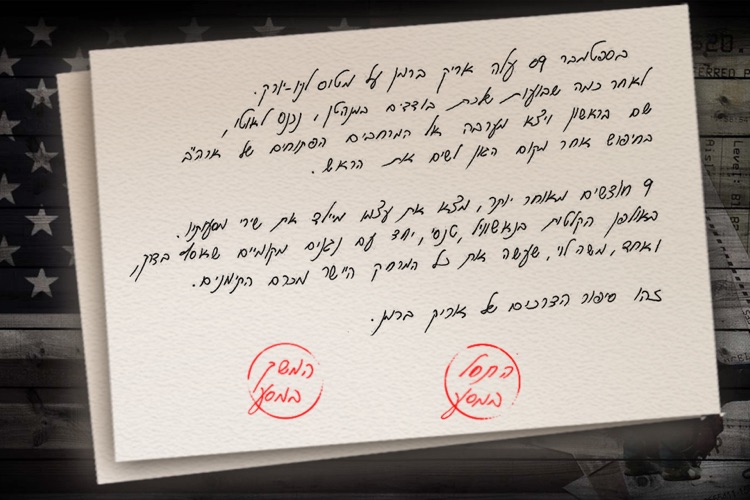 בספטמבר 09 עלה אריק ברמן על מטוס לניו-יורק.
לאחר כמה שבועות שלכת בודדים במנהטן, נכנס לאוטו,
שם בראשון ויצא מערבה אל המרחבים הפתוחים של ארה"ב
בחיפוש אחר מקום הגון לשים את הראש.
9 חודשים מאוחר יותר, מצא את עצמו מיילד את שירי מסעותיו.
באולפן הקלטות בנאשוויל, טנסי, יחד עם נגנים מקומיים שאסף בדרך,
ואחד, משה לוי, שעשה את כל המרחק הישר מכרם התימנים.
זהו סיפור הדרכים של אריק ברמן.
התחל
במסע
המשך
במסע
20.
FERRED P
Level:
Aisl